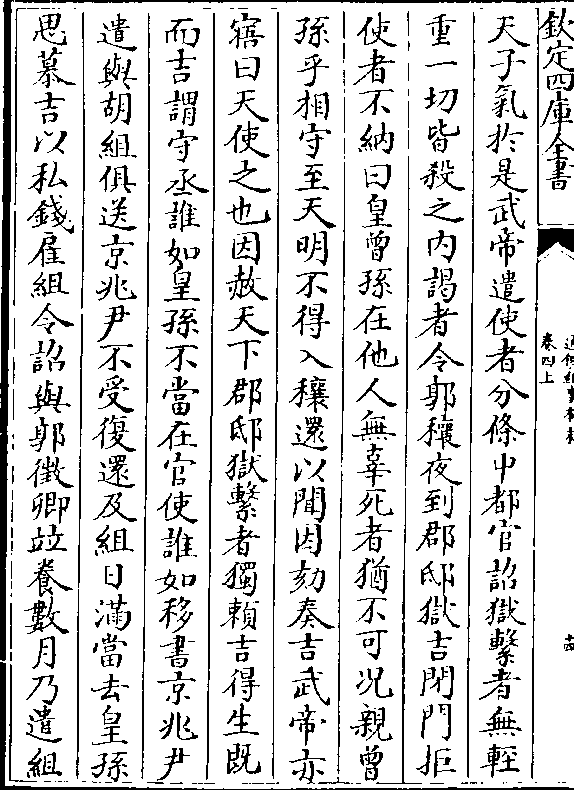 欽定四庫全書
卷四上
十四
天子氣於是武帝遣使者分條中都官詔獄繫者無輕
重一切皆殺之内謁者令郭穰夜到郡邸獄吉閉門拒
使者不納曰皇曾孫在他人無辜死者猶不可况親曾
孫乎相守至天明不得入穰還以聞因劾奏吉武帝亦
寤曰天使之也因赦天下郡邸獄繫者獨頼吉得生既
而吉謂守丞誰如皇孫不當在官使誰如移書京兆尹
遣與胡組俱送京兆尹不受復還及組日滿當去皇孫
思慕吉以私錢雇組令詔與郭徵卿竝養數月乃遣組